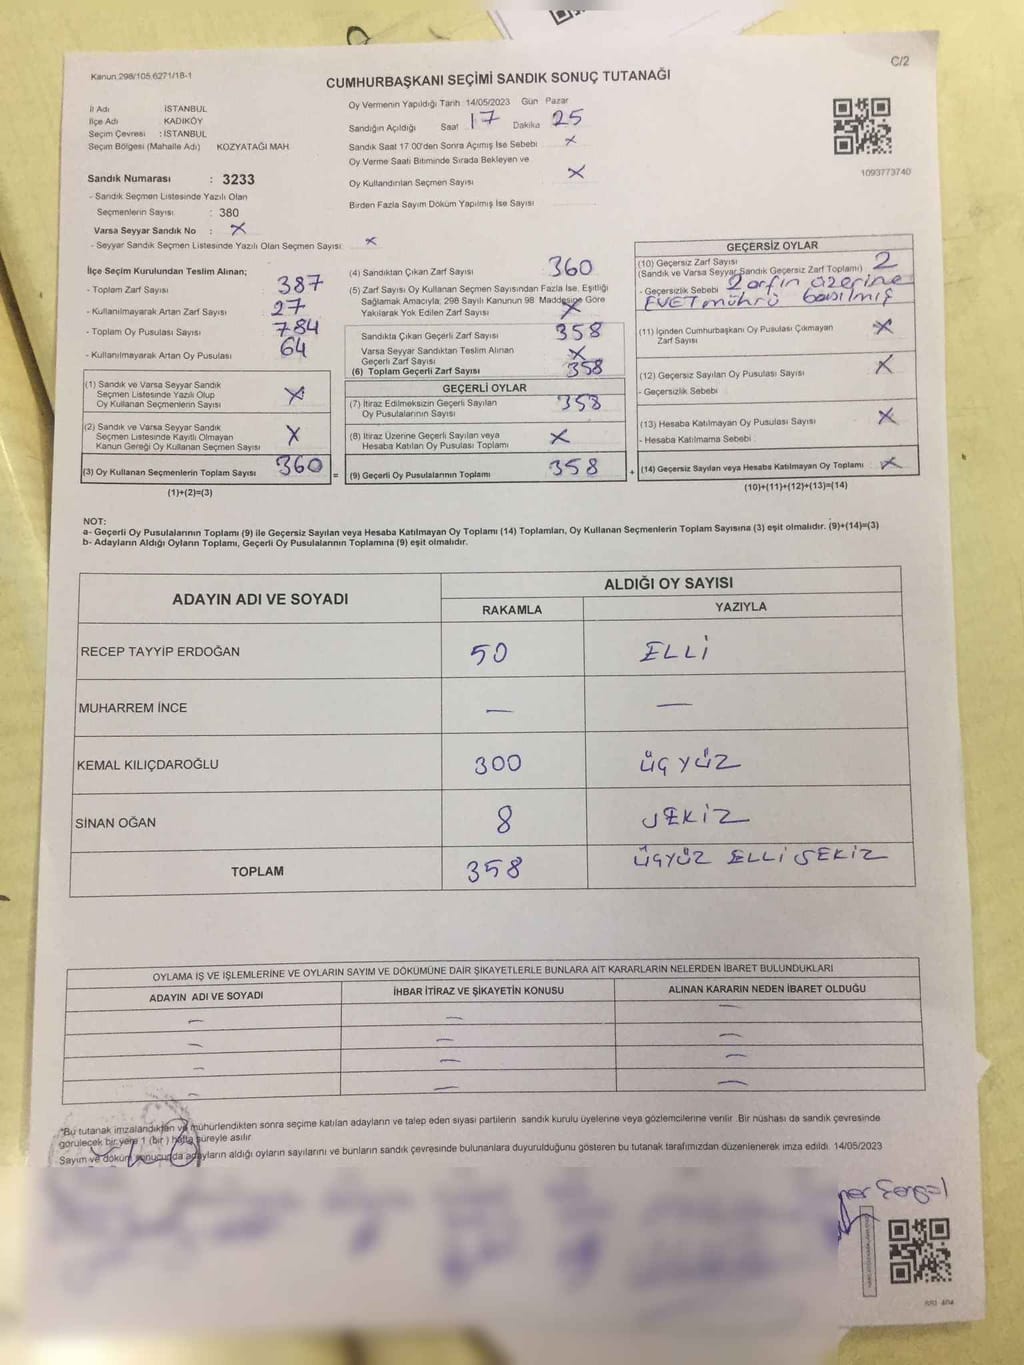 C/2
Kanun 298/105,6271/18-1
CUMHURBAŞKANI SEÇİMİ SANDIK SONUÇ TUTANAĞI
İl Adı İSTANBUL
İlçe Adı KADIKÖY
Seçim Çevresi : İSTANBUL
Seçim Bölgesi (Mahalle Adı) KOZYATAĞI MAH.
Sandık Numarası : 3233
- Sandık Seçmen Listesinde Yazılı Olan
Seçmenlerin Sayısı : 380
Varsa Seyyar Sandık No : X
- Seyyar Sandık Seçmen Listesinde Yazılı Olan Seçmen Sayısı: X
Oy Vermenin Yapıldığı Tarih 14/05/2023 Gün Pazar
Sandığın Açıldığı Saat 17 Dakika 25
Sandık Saat 17 00'den Sonra Açmış İse Sebebi X
Oy Verme Saati Bitiminde Sırada Bekleyen ve
Oy Kullandırılan Seçmen Sayısı X
Birden Fazla Sayım Döküm Yapılmış İse Sayısı
1093773740
İlçe Seçim Kurulundan Teslim Alınan;
- Toplam Zarf Sayısı 387
- Kullanılmayarak Artan Zarf Sayısı 27
- Toplam Oy Pusulası Sayısı 784
- Kullanılmayarak Artan Oy Pusulası 64
(1) Sandık ve Varsa Seyyar Sandık
Seçmen Listesinde Yazılı Olup
Oy Kullanan Seçmenlerin Sayısı X
(2) Sandık ve Varsa Seyyar Sandık
Seçmen Listesinde Kayıtlı Olmayan
Kanun Gereği Oy Kullanan Seçmen Sayısı X
(3) Oy Kullanan Seçmenlerin Toplam Sayısı 360
(1)+(2)=(3)
(4) Sandıktan Çıkan Zarf Sayısı 360
(5) Zarf Sayısı Oy Kullanan Seçmen Sayısından Fazla İse, Eşitliği
Sağlamak Amacıyla; 298 Sayılı Kanunun 98 Maddesine Göre
Yakılarak Yok Edilen Zarf Sayısı X
Sandıkta Çıkan Geçerli Zarf Sayısı 358
Varsa Seyyar Sandıktan Teslim Alınan
Geçerli Zarf Sayısı X
(6) Toplam Geçerli Zarf Sayısı 358
GEÇERLİ OYLAR
(7) İtiraz Edilmeksizin Geçerli Sayılan
Oy Pusulalarının Sayısı 358
(8) İtiraz Üzerine Geçerli Sayılan veya
Hesaba Katılan Oy Pusulası Toplamı X
= (9) Geçerli Oy Pusulalarının Toplamı 358
GEÇERSİZ OYLAR
(10) Geçersiz Zarf Sayısı
(Sandık ve Varsa Seyyar Sandık Geçersiz Zarf Toplamı) 2
- Geçersizlik Sebebi 2 arfın üzerine
EVET mührü basılmış
(11) İçinden Cumhurbaşkanı Oy Pusulası Çıkmayan
Zarf Sayısı X
(12) Geçersiz Sayılan Oy Pusulası Sayısı X
- Geçersizlik Sebebi
(13) Hesaba Katılmayan Oy Pusulası Sayısı X
- Hesaba Katılmama Sebebi
+ (14) Geçersiz Sayılan veya Hesaba Katılmayan Oy Toplamı X
(10)+(11)+(12)+(13)=(14)
NOT:
a- Geçerli Oy Pusulalarının Toplamı (9) ile Geçersiz Sayılan veya Hesaba Katılmayan Oy Toplamı (14) Toplamları, Oy Kullanan Seçmenlerin Toplam Sayısına (3) eşit olmalıdır. (9)+(14)=(3)
b- Adayların Aldığı Oyların Toplamı, Geçerli Oy Pusulalarının Toplamına (9) eşit olmalıdır.
ADAYIN ADI VE SOYADI
ALDIĞI OY SAYISI
RAKAMLA YAZIYLA
RECEP TAYYİP ERDOĞAN 50 ELLİ
MUHARREM İNCE — —
KEMAL KILIÇDAROĞLU 300 ÜÇYÜZ
SİNAN OĞAN 8 SEKİZ
TOPLAM 358 ÜÇYÜZ ELLİ SEKİZ
OYLAMA İŞ VE İŞLEMLERİNE VE OYLARIN SAYIM VE DÖKÜMÜNE DAİR ŞİKAYETLERLE BUNLARA AİT KARARLARIN NELERDEN İBARET BULUNDUKLARI
ADAYIN ADI VE SOYADI İHBAR İTİRAZ VE ŞİKAYETİN KONUSU ALINAN KARARIN NEDEN İBARET OLDUĞU
— — —
— — —
— — —
— — —
"Bu tutanak imzalandıktan ve mühürlendikten sonra seçime katılan adayların ve talep eden siyasi partilerin sandık kurulu üyelerine veya gözlemcilerine verilir. Bir nüshası da sandık çevresinde
görülecek bir yere 1 (bir) hafta süreyle asılır
Sayım ve döküm sonucunda adayların aldığı oyların sayılarını ve bunların sandık çevresinde bulunanlara duyurulduğunu gösteren bu tutanak tarafımızdan düzenlenerek imza edildi. 14/05/2023